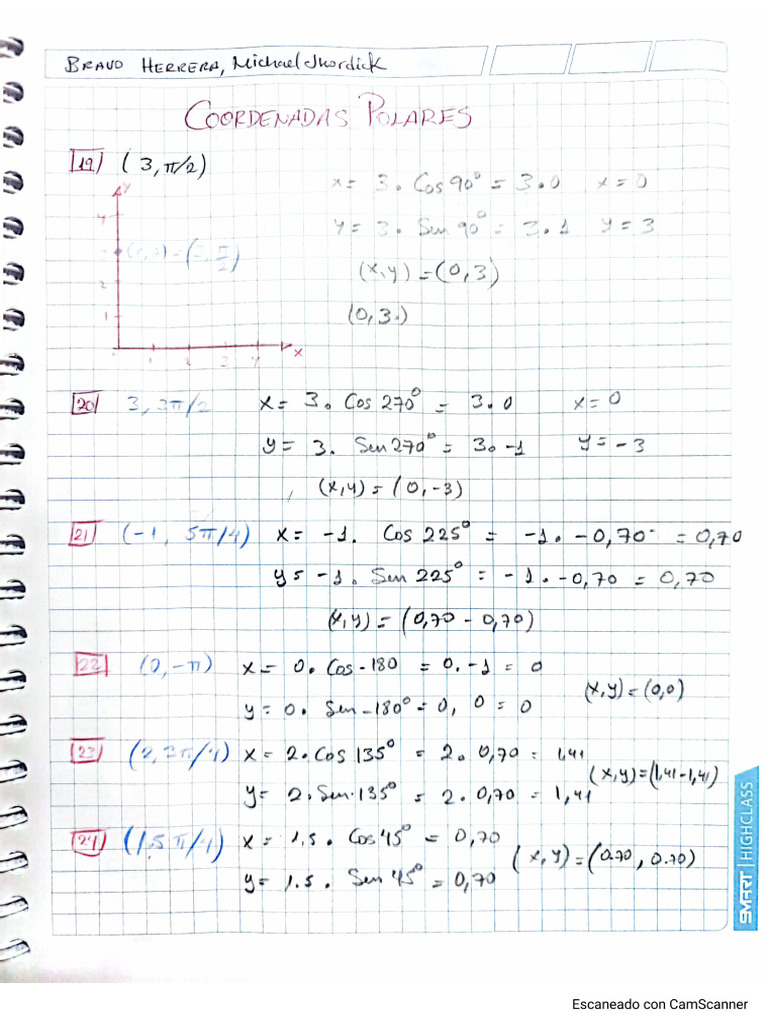 BRAVO HERRERA, Michael Jhordick
COORDENADAS POLARES
19) (3, π/2)
x = 3 . Cos 90° = 3.0 x = 0
y = 3 . Sen 90° = 3.1 y = 3
(x,y) = (0,3)
(0,3)
y
4
2
1
1 2 3 4 x
20) 3, 3π/2 x = 3. Cos 270° = 3.0 x = 0
y = 3. Sen 270° = 3. -1 y = -3
(x,y) = (0,-3)
21) (-1, 5π/4) x = -1. Cos 225° = -1. -0,70 = 0,70
y = -1. Sen 225° = -1. -0,70 = 0,70
(x,y) = (0,70 - 0,70)
22) (0, -π) x = 0. Cos -180 = 0. -1 = 0
y = 0. Sen -180° = 0, 0 = 0
(x,y) = (0,0)
23) (2, 3π/4) x = 2. Cos 135° = 2. 0,70 = 1,41
y = 2. Sen 135° = 2. 0,70 = 1,41
(x,y) = (1,41 - 1,41)
24) (1.5 π/4) x = 1.5 . Cos 45° = 0,70
y = 1.5 . Sen 45° = 0,70
(x,y) = (0.70, 0.70)
SMART | HIGHCLASS
Escaneado con CamScanner